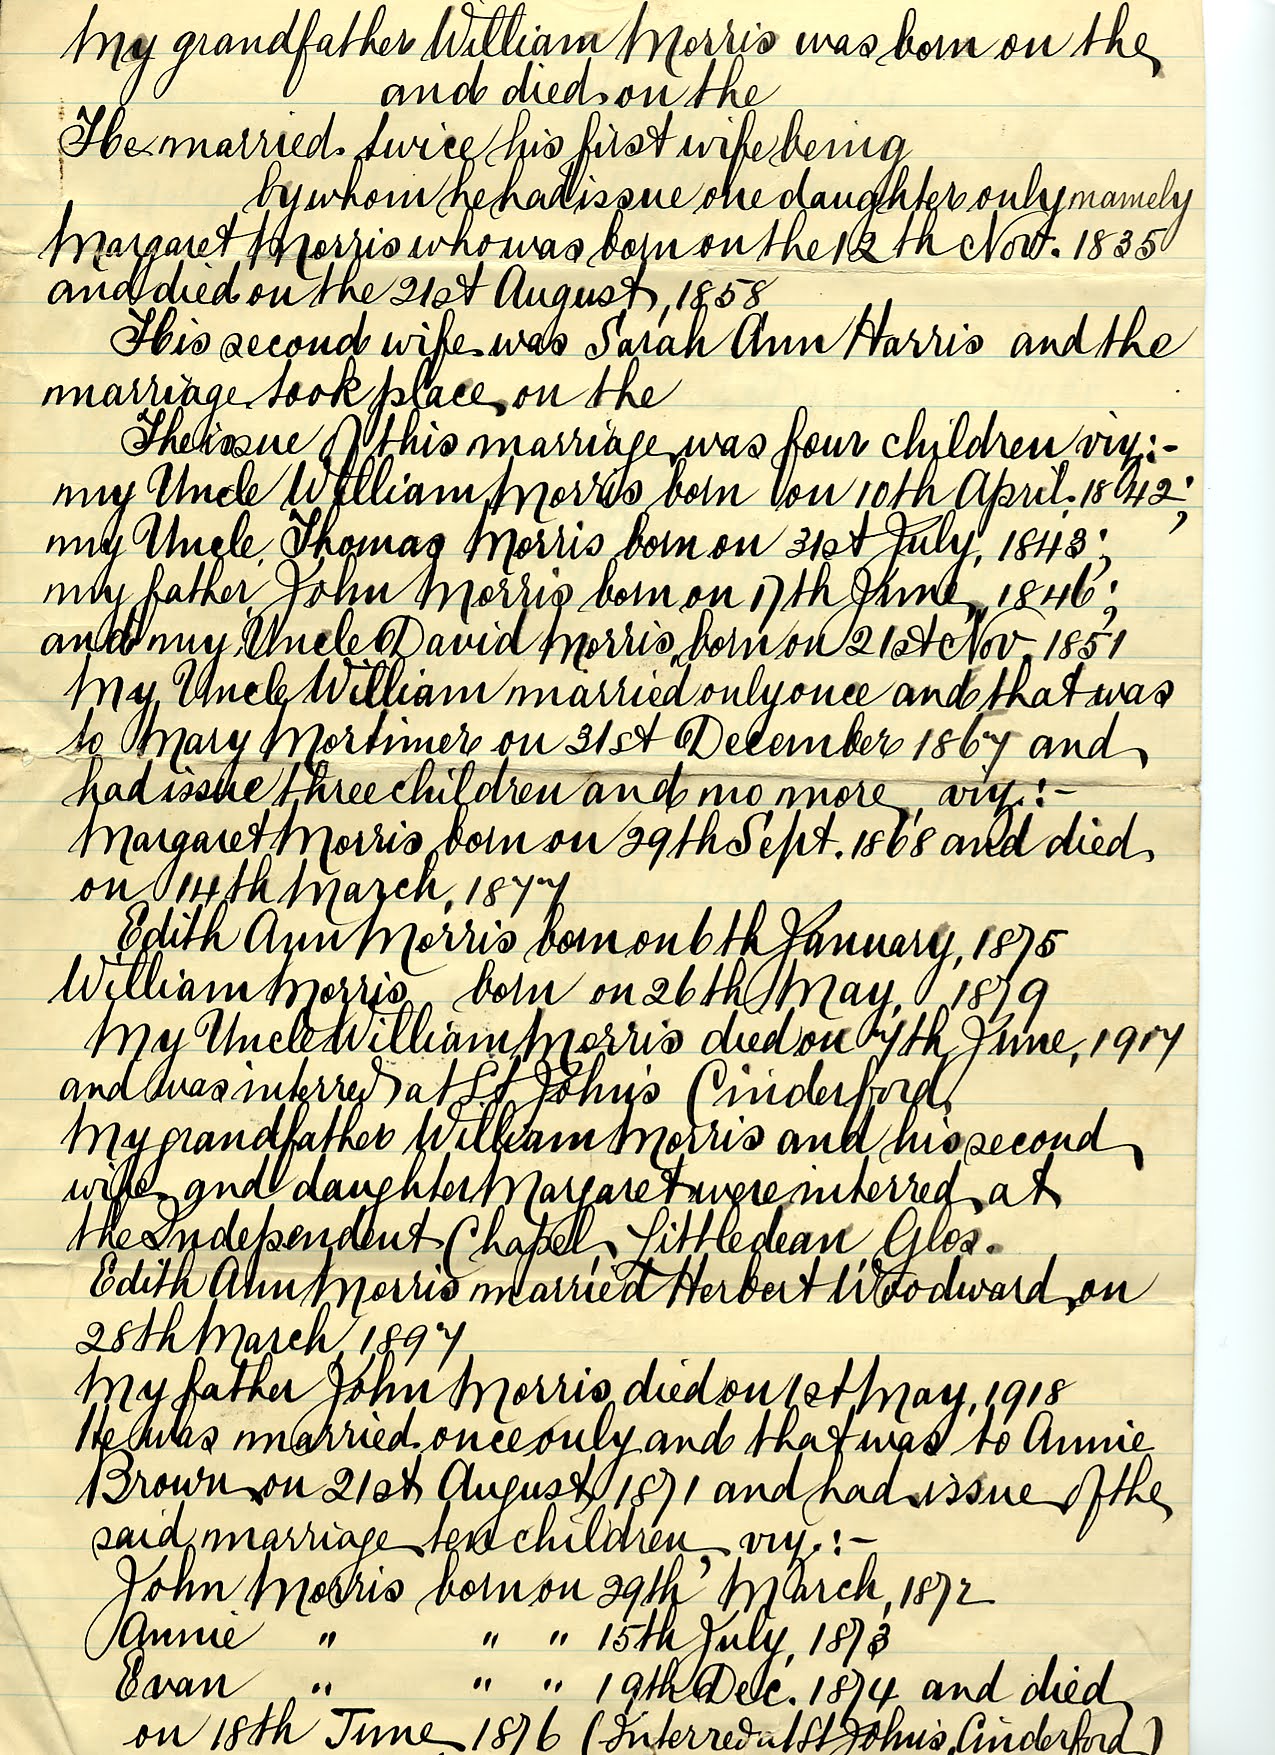 My grandfather William Morris was born on the
and died on the
He married twice his first wife being
by whom he had issue one daughter only namely
Margaret Morris who was born on the 12th Nov. 1835
and died on the 21st August, 1858
His second wife was Sarah Ann Harris and the
marriage took place on the
The issue of this marriage was four children viz:-
my Uncle William Morris born on 10th April, 1842;
my Uncle Thomas Morris born on 31st July, 1843;
my father John Morris born on 17th June, 1846;
and my Uncle David Morris, born on 21st Nov. 1851
My Uncle William married only once and that was
to Mary Mortimer on 31st December 1867 and
had issue three children and no more, viz.:-
Margaret Morris born on 29th Sept. 1868 and died
on 14th March, 1877
Edith Ann Morris born on 6th January, 1875
William Morris born on 26th May, 1879
My Uncle William Morris died on 7th June, 1917
and was interred at St John's Cinderford.
My grandfather William Morris and his second
wife and daughter Margaret were interred at
the Independent Chapel, Littledean Glos.
Edith Ann Morris married Herbert Woodward on
28th March, 1897
My father John Morris died on 1st May, 1918
He was married once only and that was to Annie
Brown on 21st August, 1871 and had issue of the
said marriage ten children, viz.:-
John Morris born on 29th March, 1872
Annie " " " 15th July, 1873
Evan " " " 19th Dec. 1874 and died
on 18th June, 1876 (Interred at St John's, Cinderford)